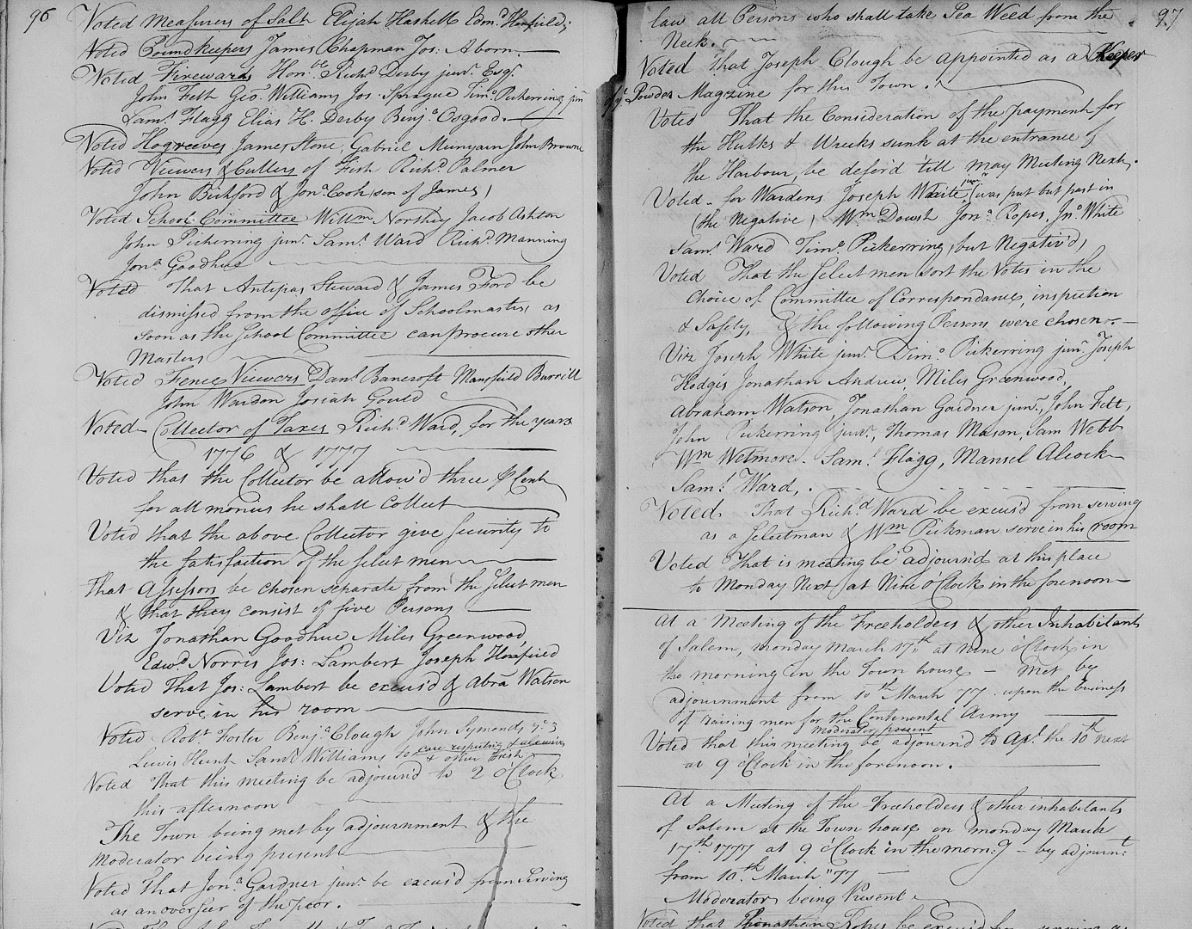 96
Voted Measurers of Salt Elijah Haskett Edmd Henfield;
Voted Poundkeepers James Chapman Jos: Aborn.
Voted Firewards Honble Richd Derby junr. Esqr.
John Felt Geo. Williams Jos: Sprague Timo. Pickerring jun
Saml. Flagg Elias H. Derby Benja. Osgood.
Voted Hogreeves James Stone, Gabriel Munyain John Browne
Voted Viewers & Cullers of Fish Richd. Palmer
John Bickford & Jona Cook son of James,
Voted School Committee Willm Northey Jacob Ashton
John Pickerring junr. Saml. Ward Richd. Manning
Jona Goodhue
Voted That Antipas Steward & James Ford be
dismissed from the office of Schoolmasters as
soon as the School Committee can procure other
Masters
Voted Fence Viewers Danl. Bancroft Mansfield Burrill
John Wardon Josiah Gould
Voted - Collector of Taxes Richd Ward, for the years
1776 & 1777
Voted that the Collector be allow'd three # Cent
for all monies he shall collect
Voted that the above Collector give Security to
the satisfaction of the select men
That Assessors be chosen separate from the select men
& that they consist of five Persons
Viz Jonathan Goodhue Miles Greenwood
Edwd. Norris Jos: Lambert Joseph Henfield
Voted That Jos: Lambert be excus'd & Abra Watson
serve in his room
Voted Robt Foster Benja. Clough John Symonds ye 3
Lewis Hunt Saml Williams to care respecting
& other Fish
Voted That this meeting be adjournd to 2 oClock
this afternoon
The Town being met by adjournment & the
Moderator being present
Voted That Jona. Gardner junr. be excus'd from serving
as an overseer of the poor.
97
law all Persons who shall take Sea Weed from the
Neck.
Voted That Joseph Clough be appointed as a Keeper
of ye Powder Magzine for this Town.
Voted That the Consideration of the payment for
the Hulks & Wrecks sunk at the entrance of
the Harbour, be defer'd till may Meeting Next.
Voted - for Wardens Joseph White junr (was put but past in
the Negative) Wm Dowst Jona. Ropes, Jno. White
Saml. Ward Timo Pickerring, but Negativ'd,
Voted That the select men sort the Votes in the
choice of Committee of Correspondance, inspection
& Safety, & the following Persons were chosen
Viz Joseph White junr. Timo. Pickerring junr Joseph
Hodges Jonathan Andrew, Miles Greenwood,
Abraham Watson Jonathan Gardner junr., John Felt,
John Pickerring junr., Thomas Mason, Sam Webb
Wm Wetmore. Saml. Flagg, Mansel Alcock
Saml. Ward,
Voted. That Richd Ward be excus'd from serving
as a Selectman & Wm Pickman serve in his room
Voted That is meeting be adjournd at this place
to Monday Next at Nine oClock in the forenoon
At a Meeting of the Freeholders & other Inhabitants
of Salem, monday march 17th at nine oClock in
the morning in the Town house - Met by
adjournment from 10th March 77. upon the business
of raising men for the Continental Army
Moderator present
Voted that this meeting be adjournd to Apl. the 10th next
at 9 oClock in the forenoon.
At a Meeting of the Freeholders & other inhabitants
of Salem at the Town house on monday March
17th 1777 at 9 oClock in the morng - by adjournt
from 10th March "77
Moderator being Present
Voted that Jonathan Ropes be excus'd from serving as